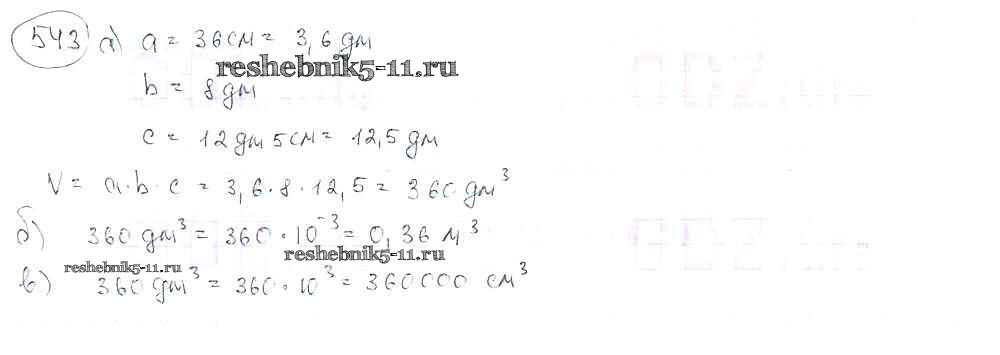 543 а) a = 36 см = 3,6 дм
reshebnik5-11.ru
b = 8 дм
c = 12 дм 5 см = 12,5 дм
V = a · b · c = 3,6 · 8 · 12,5 = 360 дм³
б) 360 дм³ = 360 · 10⁻³ = 0,36 м³
reshebnik5-11.ru
reshebnik5-11.ru
в) 360 дм³ = 360 · 10³ = 360000 см³